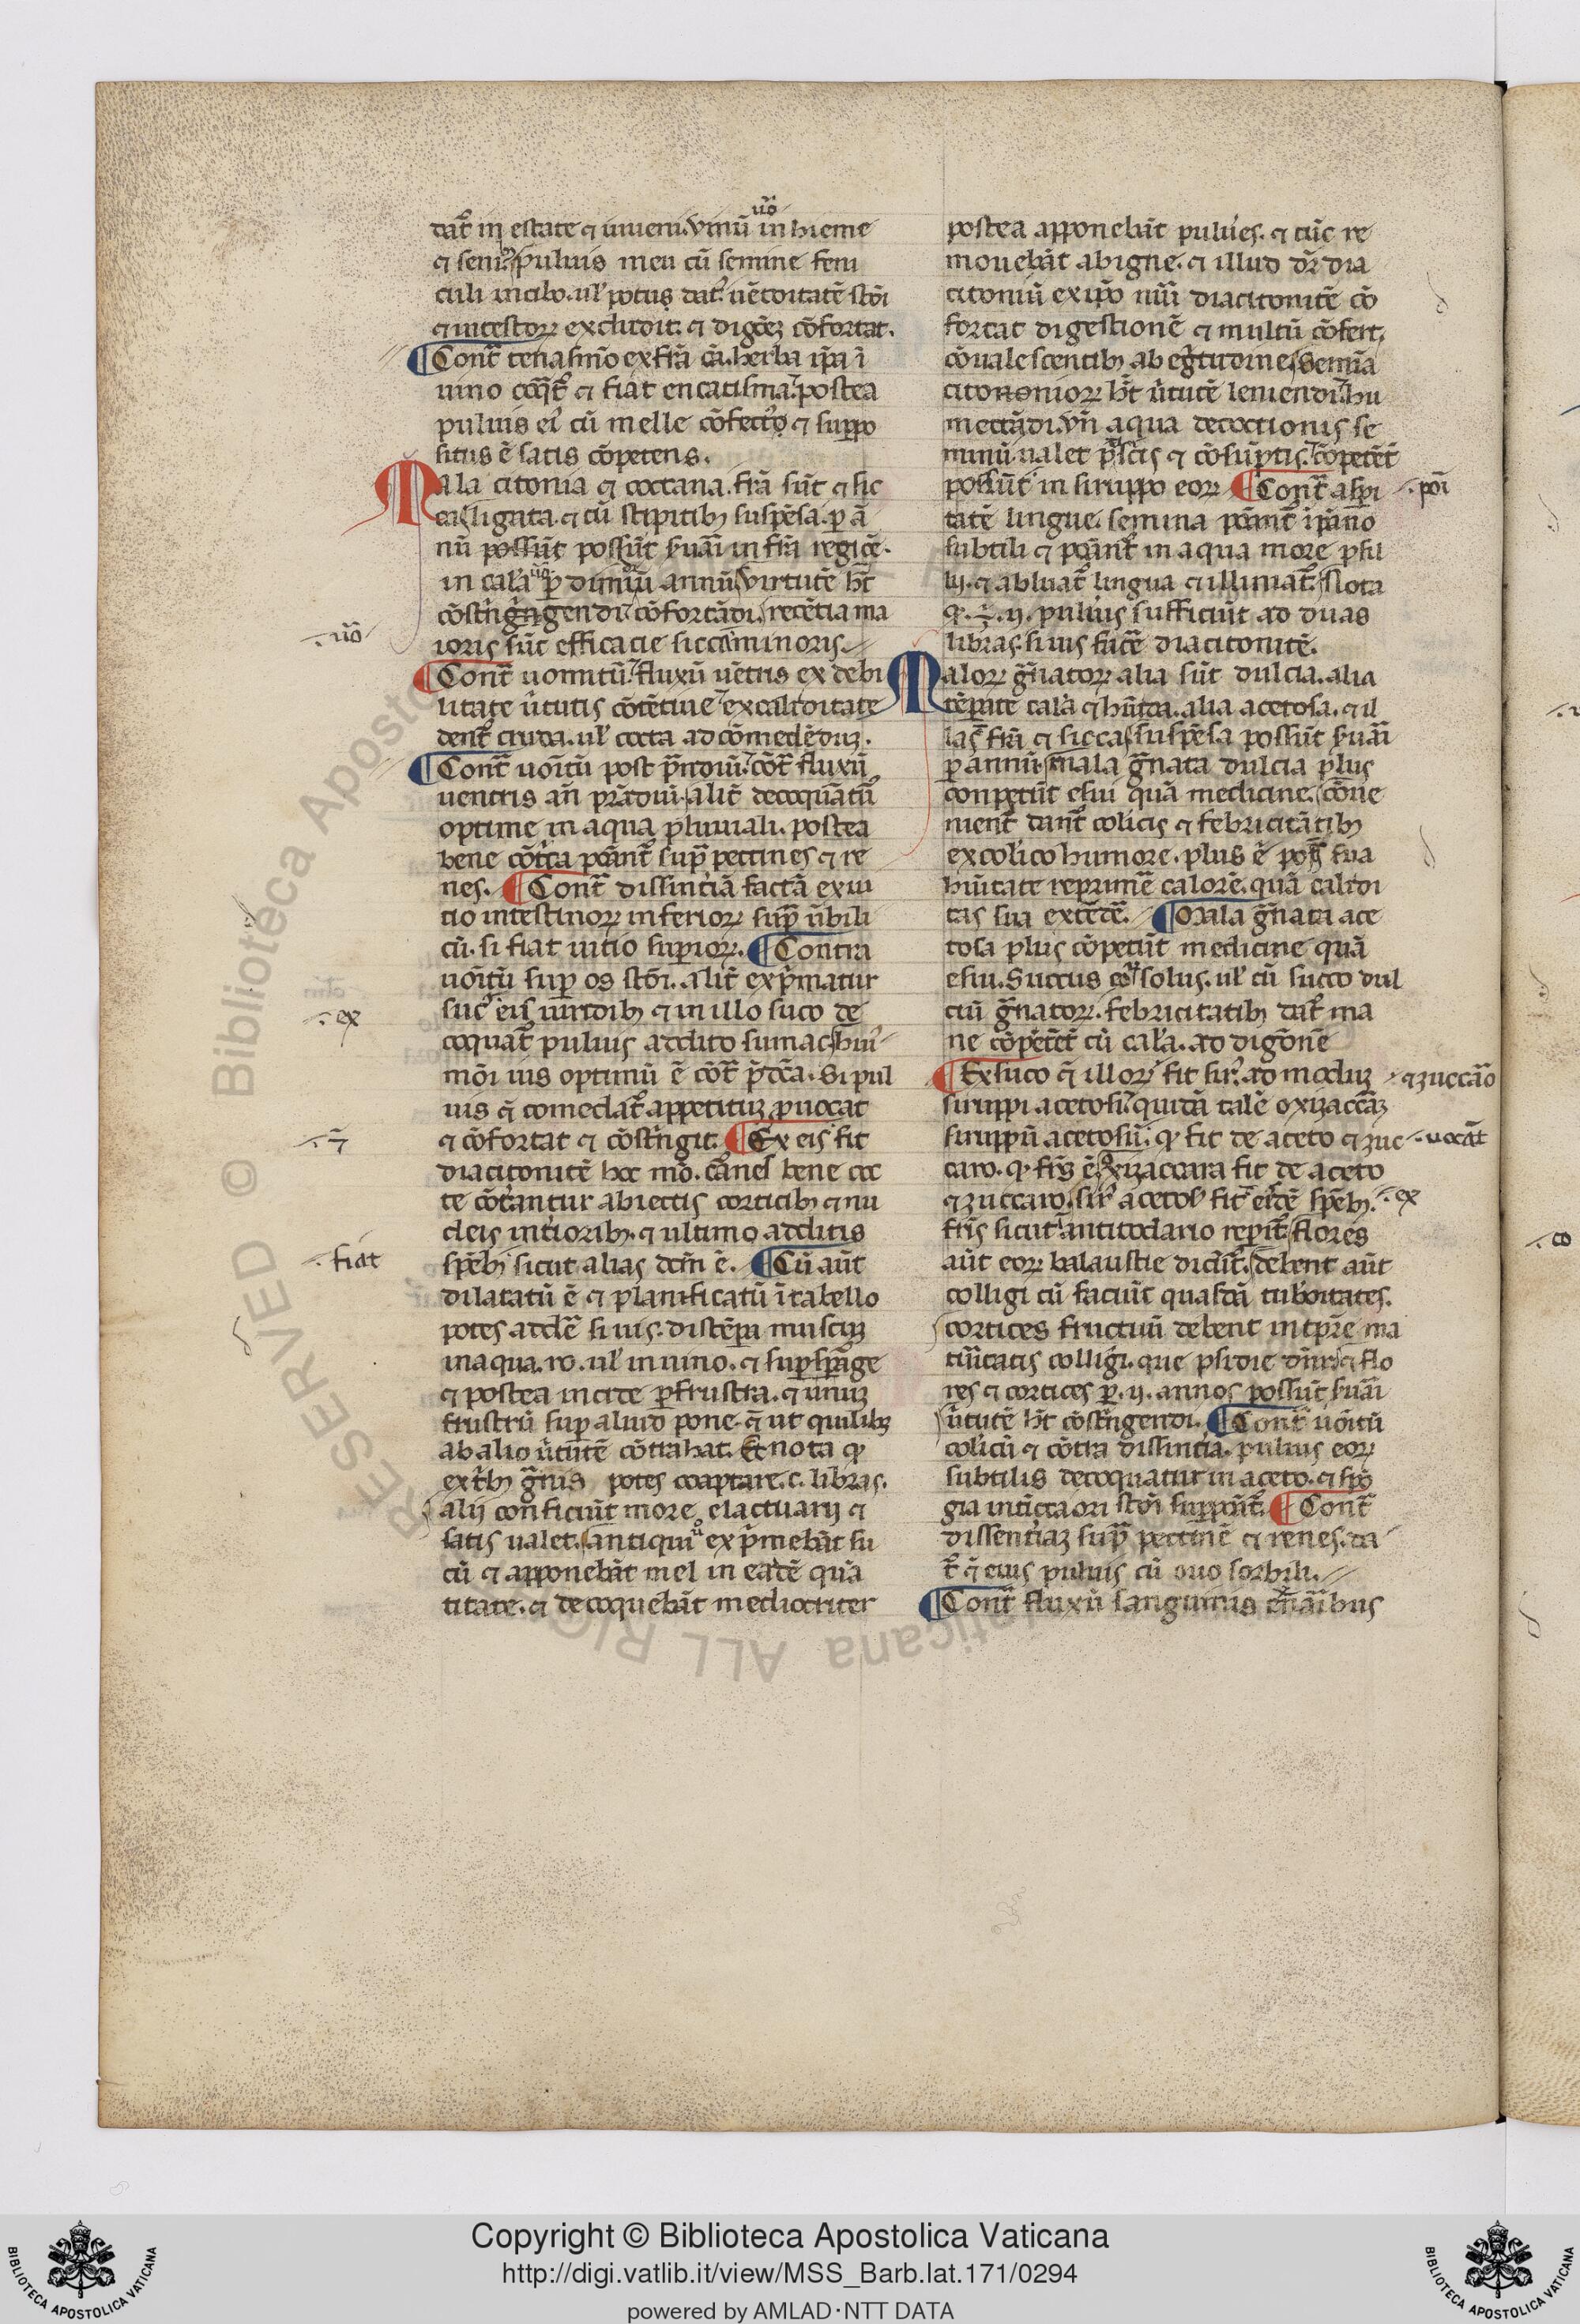 uō
dat᷑ in estate ⁊ iuueni. vinū in hieme
⁊ seni. puluis meu cū semine feni
culi in cibo. ul' potus dat᷑. uētoitatē stōi
⁊ intestoꝝ excludit. ⁊ digōeꝫ cōfortat.
Cont᷑ tenasmō ex frā cā. herba ip̄a ī
uino coq̄t᷑ ⁊ fiat encatisma. postea
puluis ei' cū melle cōfecto ⁊ suppo
situs ē satis cōpetens.
Mala citonia ⁊ coctana. frā sūt ⁊ sic
ca. ligata. ⁊ cū stipitibꝫ suspēsa. ꝑ ā
nū possūt possūt ẜuāi in frā regiōe.
in cal'a uō ꝑ dimiū annū virtutē hn̄t
cōstrīgrīngendi ⁊ cōfortādi. recētia ma
uō
ioris sūt efficacie sicca minoris.
Cont᷑ uomitū ⁊ fluxū uētris ex debi
litate ūtutis cōtētiue ⁊ ex caliditate
dent᷑ cruda. ul' cocta ad cōmedēduꝫ.
Cont᷑ uōitū post prādiū. ⁊ cōt᷑ fluxū
uentris an̄ prādiū. alit᷑ decoquātū
optime in aqua pluuiali. postea
bene cōt'ta pōant᷑ sup̄ pectines ⁊ re
nes. Cont᷑ dissint'iā factā ex ui
tio intestinoꝝ inferioꝝ sup̄ ūbili
cū. si fiat uitio supioꝝ. Contra
uōitū sup os stōi. Alit᷑ exp̄matur
suc' eis uiridibꝫ ⁊ in illo suco de
ex
coquat᷑ puluis addito sumac. hui'
mōi ius optimū ē cōt᷑ p̄dca. Si pul
uis q̄ comedat᷑ appetituꝫ ꝓuocat
⁊ cōfortat ⁊ cōstrīgit. Ex eis fit
diacitonitē hoc mō. cānel' bene coc
te cōt'antur abiectis corticibꝫ ⁊ nu
cleis int'ioribꝫ. ⁊ ultimo additis
fiāt
spēbꝫ sicut alias dcm̄ ē. Cū aūt
dilatatū ē ⁊ planificatū ī tabello
potes addē si uis. distēpa muscuꝫ
in aqua. ro. ul' in uino. ⁊ supsp̄ge
⁊ postea incide ꝑ frustra. ⁊ unūꝫ
frustrū sup aliud pone. q̄ ut quilibꝫ
ab alio ūtutē cōtrahat. Et nota ꝙ
ex t'bꝫ grānis potes coaptare. c. libras.
alij conficiūt more elactuarij ⁊
satis ualet. antiqui uō exp̄mebāt su
cū ⁊ apponebāt mel in eadē quā
titate. ⁊ decoquebāt mediocriter
postea apponebāt pulu'es. ⁊ tūc re
mouebāt ab igne. ⁊ illud dr̄ dia
citoniū ex ip̄o nūi diacitonitē cō
fortat digestionē ⁊ multū cōfert.
cōualescentibꝫ ab egritudine. Semīa
citononioꝝ hn̄t ūtutē leniendi ⁊ hu
mectādi. vn̄ aqua decoctionis se
minū ualet p̄tisicis ⁊ cōsūptis. cōpetēt᷑
possūt in siruppo eoꝝ Cont᷑ aspi
poī
tatē lingue. semina pōant᷑ ī pāno
subtili ⁊ pōant᷑ in aqua more psil
lij. ⁊ abluat᷑ lingua ⁊ illiniat᷑. Nota
ꝙ. ℥. ij. puluis sufficiūt ad duas
libras. si uis facē diacitonitē.
Maloꝝ grānatoꝝ alia sūt dulcia. alia
tēpate cal'a ⁊ hūida. alia acetosa. ⁊ il
la frā ⁊ sicca. suspēsa possūt ẜuāi
ꝑ annū. mala grānata dulcia plus
conpetūt esui quā medicine. cōue
nient᷑ dant᷑ colicis ⁊ febricitātibꝫ
ex colico humore. plus ē pot᷑ sua
hūitate reprimē calorē. quā calidi
tas sua extēdē. Mala grānata ace
tosa plus cōpetūt medicine quā
esui. Succus eoꝝ solus. ul' cū succo dul
ciū grānatoꝝ. febricitātibꝫ dat᷑ ma
ne cōpetēt᷑ cū cal'a. ad digōnē
Ex suco q̄ illoꝝ fit sir'. ad moduꝫ
⁊ zuccāo
siruppi acetosi. quidā talē oxizaccāꝫ
siruppū acetosū. ꝙ fit de aceto ⁊ zuc
uocāt
caro. ꝙ frīs ē. oxizaccara fit de aceto
⁊ zuccaro. sir' acetos' fit eisdē spēbꝫ.
ex
frīs sicut ī antitodario repit᷑. flores
aūt eoꝝ balaustie dicūt᷑. debent aūt
colligi cū faciūt quasdā tub'oitates.
cortices fructuū debent in tp̄re ma
turitatis colligi. que psidie dnr̄. ⁊ flo
res ⁊ cortices ꝑ. ij. annos possūt ẜuāi
ūtutē hn̄t cōstrīgendi. Cont᷑ uōitū
colicū ⁊ cōtra dissint'ia. puluis eoꝝ
subtilis decoquatur in aceto. ⁊ spō
gia intīcta ori stōi suppōat᷑. Cont᷑
dissent'iaꝫ sup̄ pectinē ⁊ renes. da
t᷑ q̄ eius puluis cū ouo sorbili.
Cont᷑ fluxū sanguinis
RESERVED © Biblioteca Apostolica Vaticana ALL RIG
Copyright © Biblioteca Apostolica Vaticana
http://digi.vatlib.it/view/MSS_Barb.lat.171/0294
powered by AMLAD·NTT DATA
BIBLIOTECA APOSTOLICA VATICANA
BIBLIOTECA APOSTOLICA VATICANA